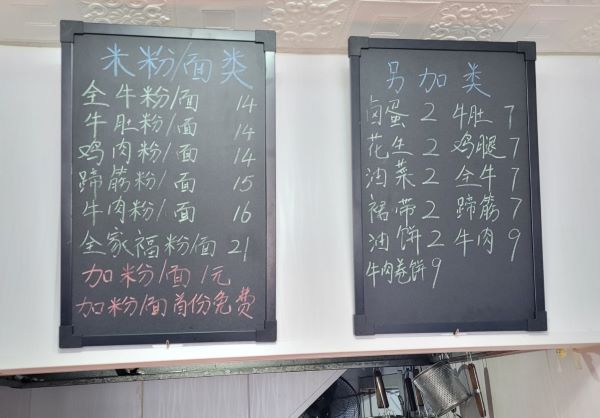 米粉/面类
全牛粉/面 14
牛肚粉/面 14
鸡肉粉/面 14
蹄筋粉/面 15
牛肉粉/面 16
全家福粉/面 21
加粉/面 1元
加粉/面首份免费
另加类
卤蛋 2 牛肚 7
花生 2 鸡腿 7
油菜 2 全牛 7
裙带 2 蹄筋 7
油饼 2 牛肉 9
牛肉卷饼 9